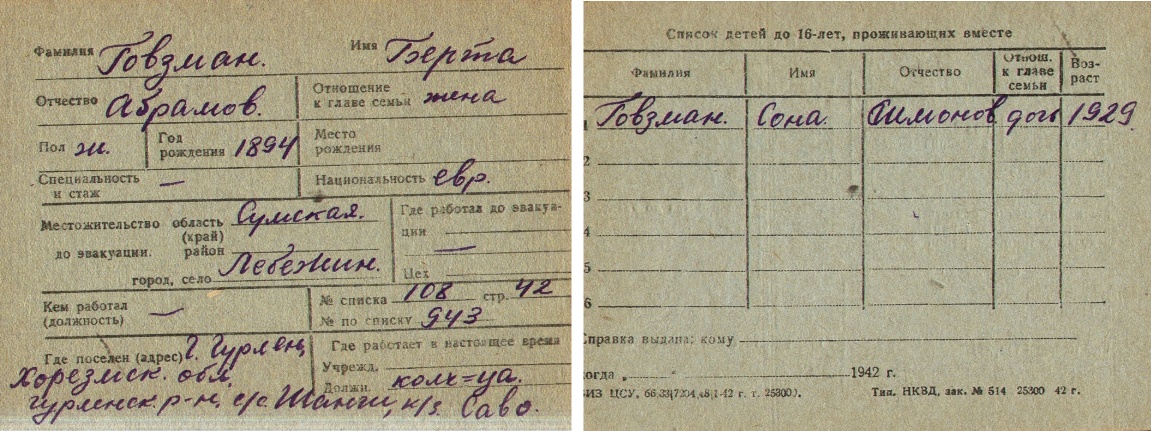 Фамилия Говзман. Имя Берта
Отчество Абрамов. Отношение к главе семьи жена
Пол ж. Год рождения 1894 Место рождения
Специальность и стаж — Национальность евр.
Местожительство область (край) Сумская. Где работал до эвакуа-
до эвакуации. район ции —
город, село Лебежин. Цех
Кем работал (должность) — № списка 108 стр. 42
№ по списку 943
Где поселен (адрес) г. Гурлен, Где работает в настоящее время
Хорезмск. обл. Учрежд.
Гурленск. р-н, с/с. Шанги, к/з. Саво. Должн. колх=ца.
Список детей до 16-лет, проживающих вместе
Фамилия Имя Отчество Отнош. к главе семьи Воз-раст
Говзман. Сона. Симонов дочь 1929.
2
3
4
5
6
Справка выдана: кому
когда 1942 г.
Тип. НКВД, зак. № 514 25300 42 г.